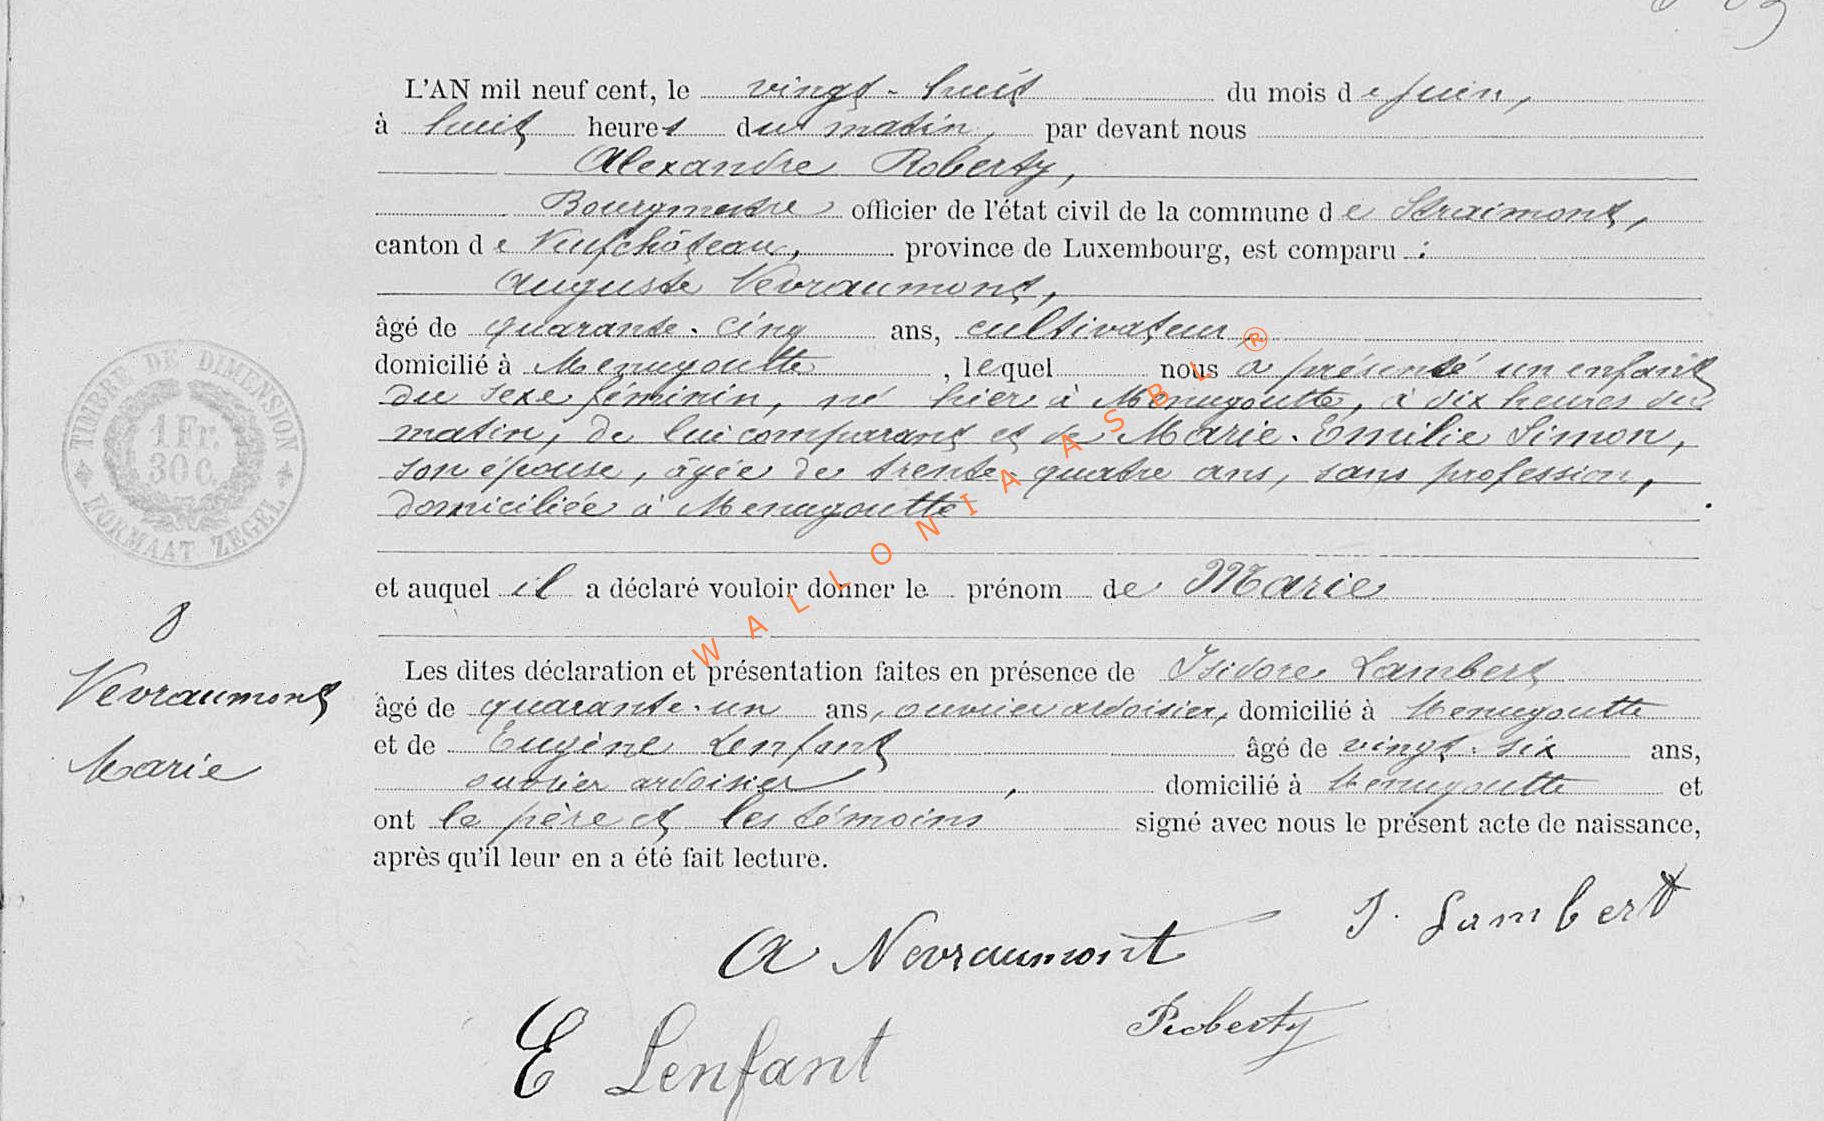 L'AN mil neuf cent, le vingt-huit du mois de Juin,
à huit heures du matin, par devant nous
Alexandre Roberty,
Bourgmestre officier de l'état civil de la commune de Straimont,
canton de Neufchâteau, province de Luxembourg, est comparu :
Auguste Nevraumont,
âgé de quarante-cinq ans, cultivateur,
domicilié à Menugoutte, lequel nous a présenté un enfant
du sexe féminin, né hier à Menugoutte, à dix heures du
matin, de lui comparant et de Marie-Emilie Simon,
son épouse, âgée de trente-quatre ans, sans profession,
domiciliée à Menugoutte.
et auquel il a déclaré vouloir donner le prénom de Marie
Les dites déclaration et présentation faites en présence de Isidore Lambert
âgé de quarante-un ans, ouvrier ardoisier, domicilié à Menugoutte
et de Eugène Lenfant âgé de vingt-six ans,
ouvrier ardoisier, domicilié à Menugoutte et
ont le père et les témoins signé avec nous le présent acte de naissance,
après qu'il leur en a été fait lecture.
TIMBRE DE DIMENSION
1 Fr.
30 C.
FORMAAT ZEGEL
8
Nevraumont
Marie
J. Lambert
A Nevraumont
Roberty
E Lenfant
WALLONIA ASBL ®